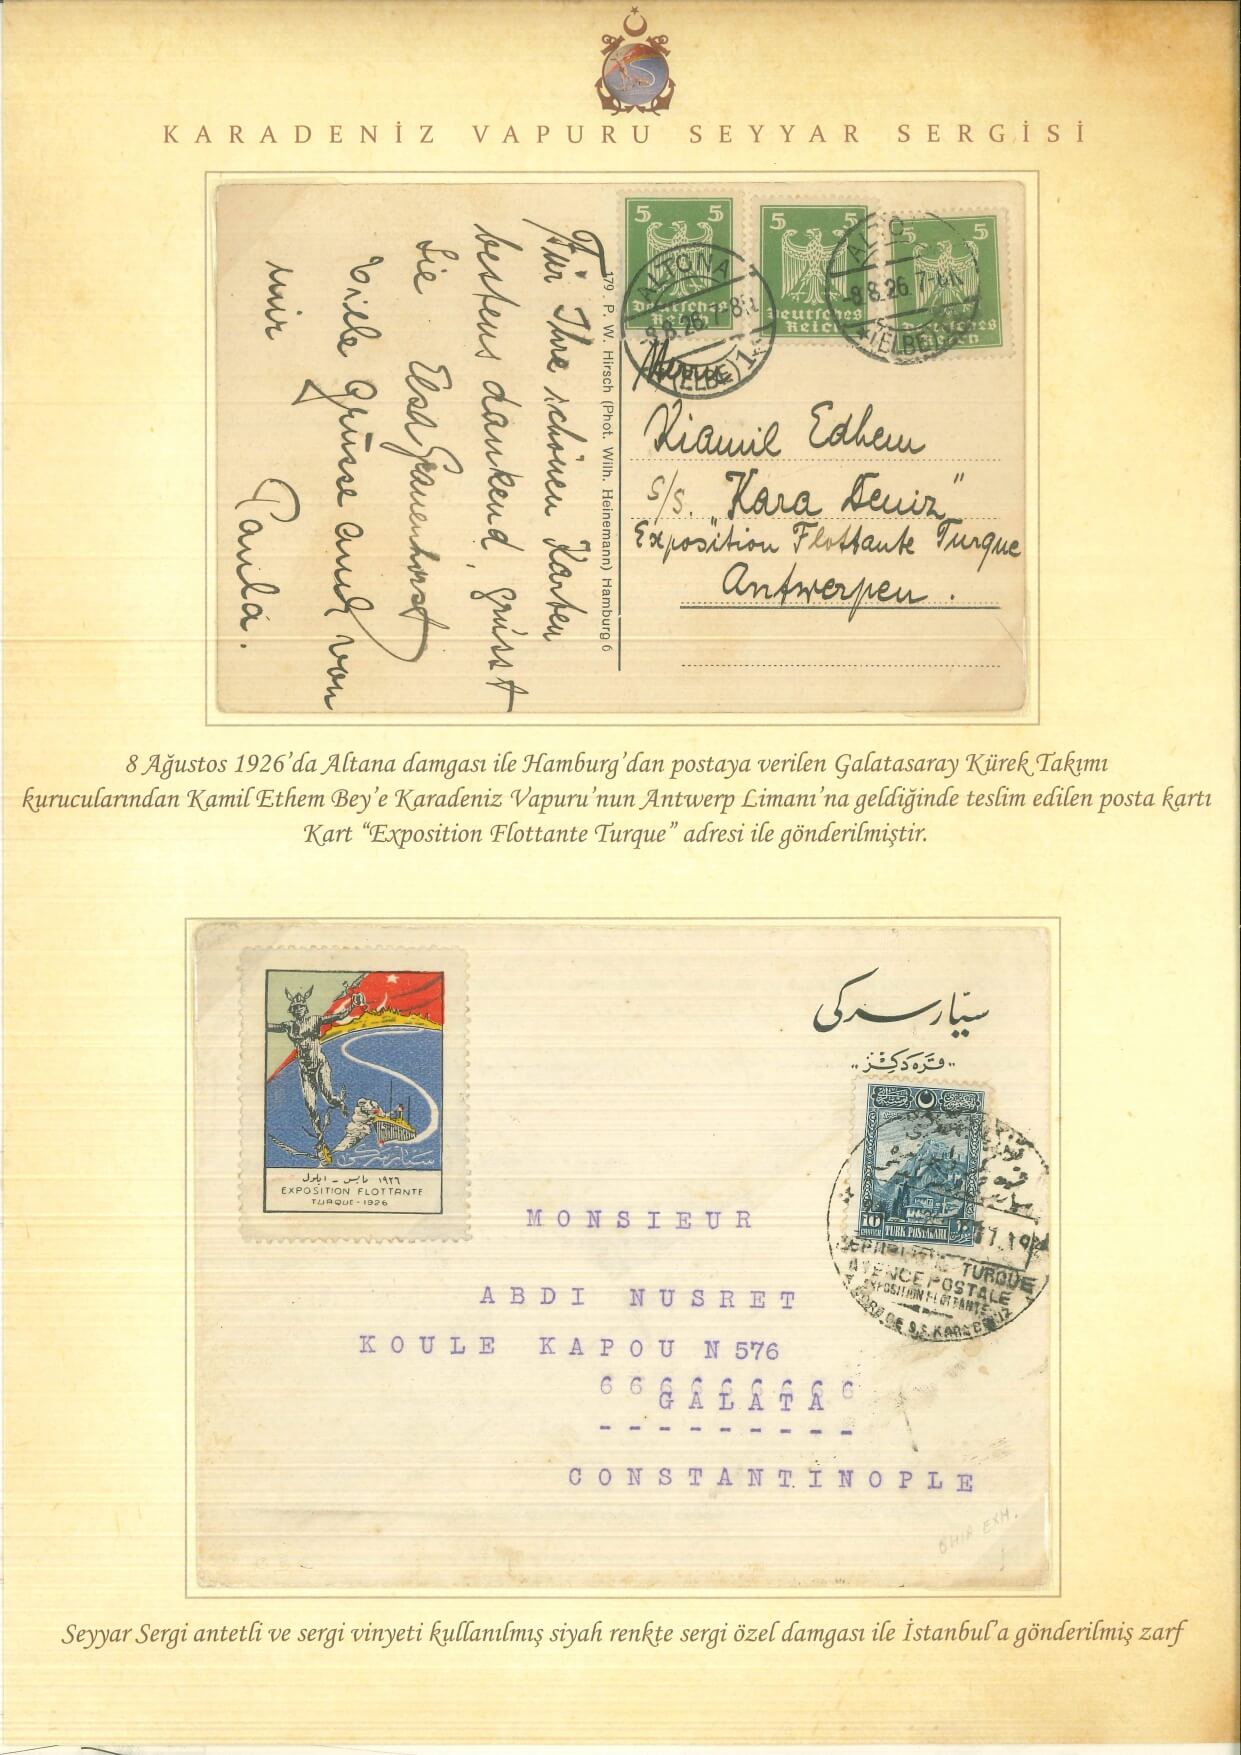 KARADENİZ VAPURU SEYYAR SERGİSİ
5 5
Deutsches
Reich
5 5
Deutsches
Reich
5
Deutsches
Reich
ALTONA
8.8.26. 7-8
(ELBE) 1
ALTO
-8.8.26. 7-8
(ELBE)
Für Ihre schönen Karten
bestens dankend, grüsst
Sie
viele Grüsse auch von
mir
Paula.
179. P. W. Hirsch (Phot. Wilh. Heinemann) Hamburg 6
Kiamil Edhem
S/S. "Kara Deniz"
Exposition Flottante Turque
Antwerpen.
8 Ağustos 1926’da Altana damgası ile Hamburg’dan postaya verilen Galatasaray Kürek Takımı
kurucularından Kamil Ethem Bey’e Karadeniz Vapuru’nun Antwerp Limanı’na geldiğinde teslim edilen posta kartı
Kart “Exposition Flottante Turque” adresi ile gönderilmiştir.
سيار سركى
١٩٢٦ مايس - ايلول
EXPOSITION FLOTTANTE
TURQUE - 1926
سيّار سركى
„قره دكز„
10
TÜRK POSTALARI
REPUBLIQUE TURQUE
AGENCE POSTALE
EXPOSITION FLOTTANTE
A BORD DE S.S. KARADENIZ
MONSIEUR
ABDI NUSRET
KOULE KAPOU N 576
666666666
GALATA
---------
CONSTANTINOPLE
SHIP EXH.
Seyyar Sergi antetli ve sergi vinyeti kullanılmış siyah renkte sergi özel damgası ile İstanbul’a gönderilmiş zarf